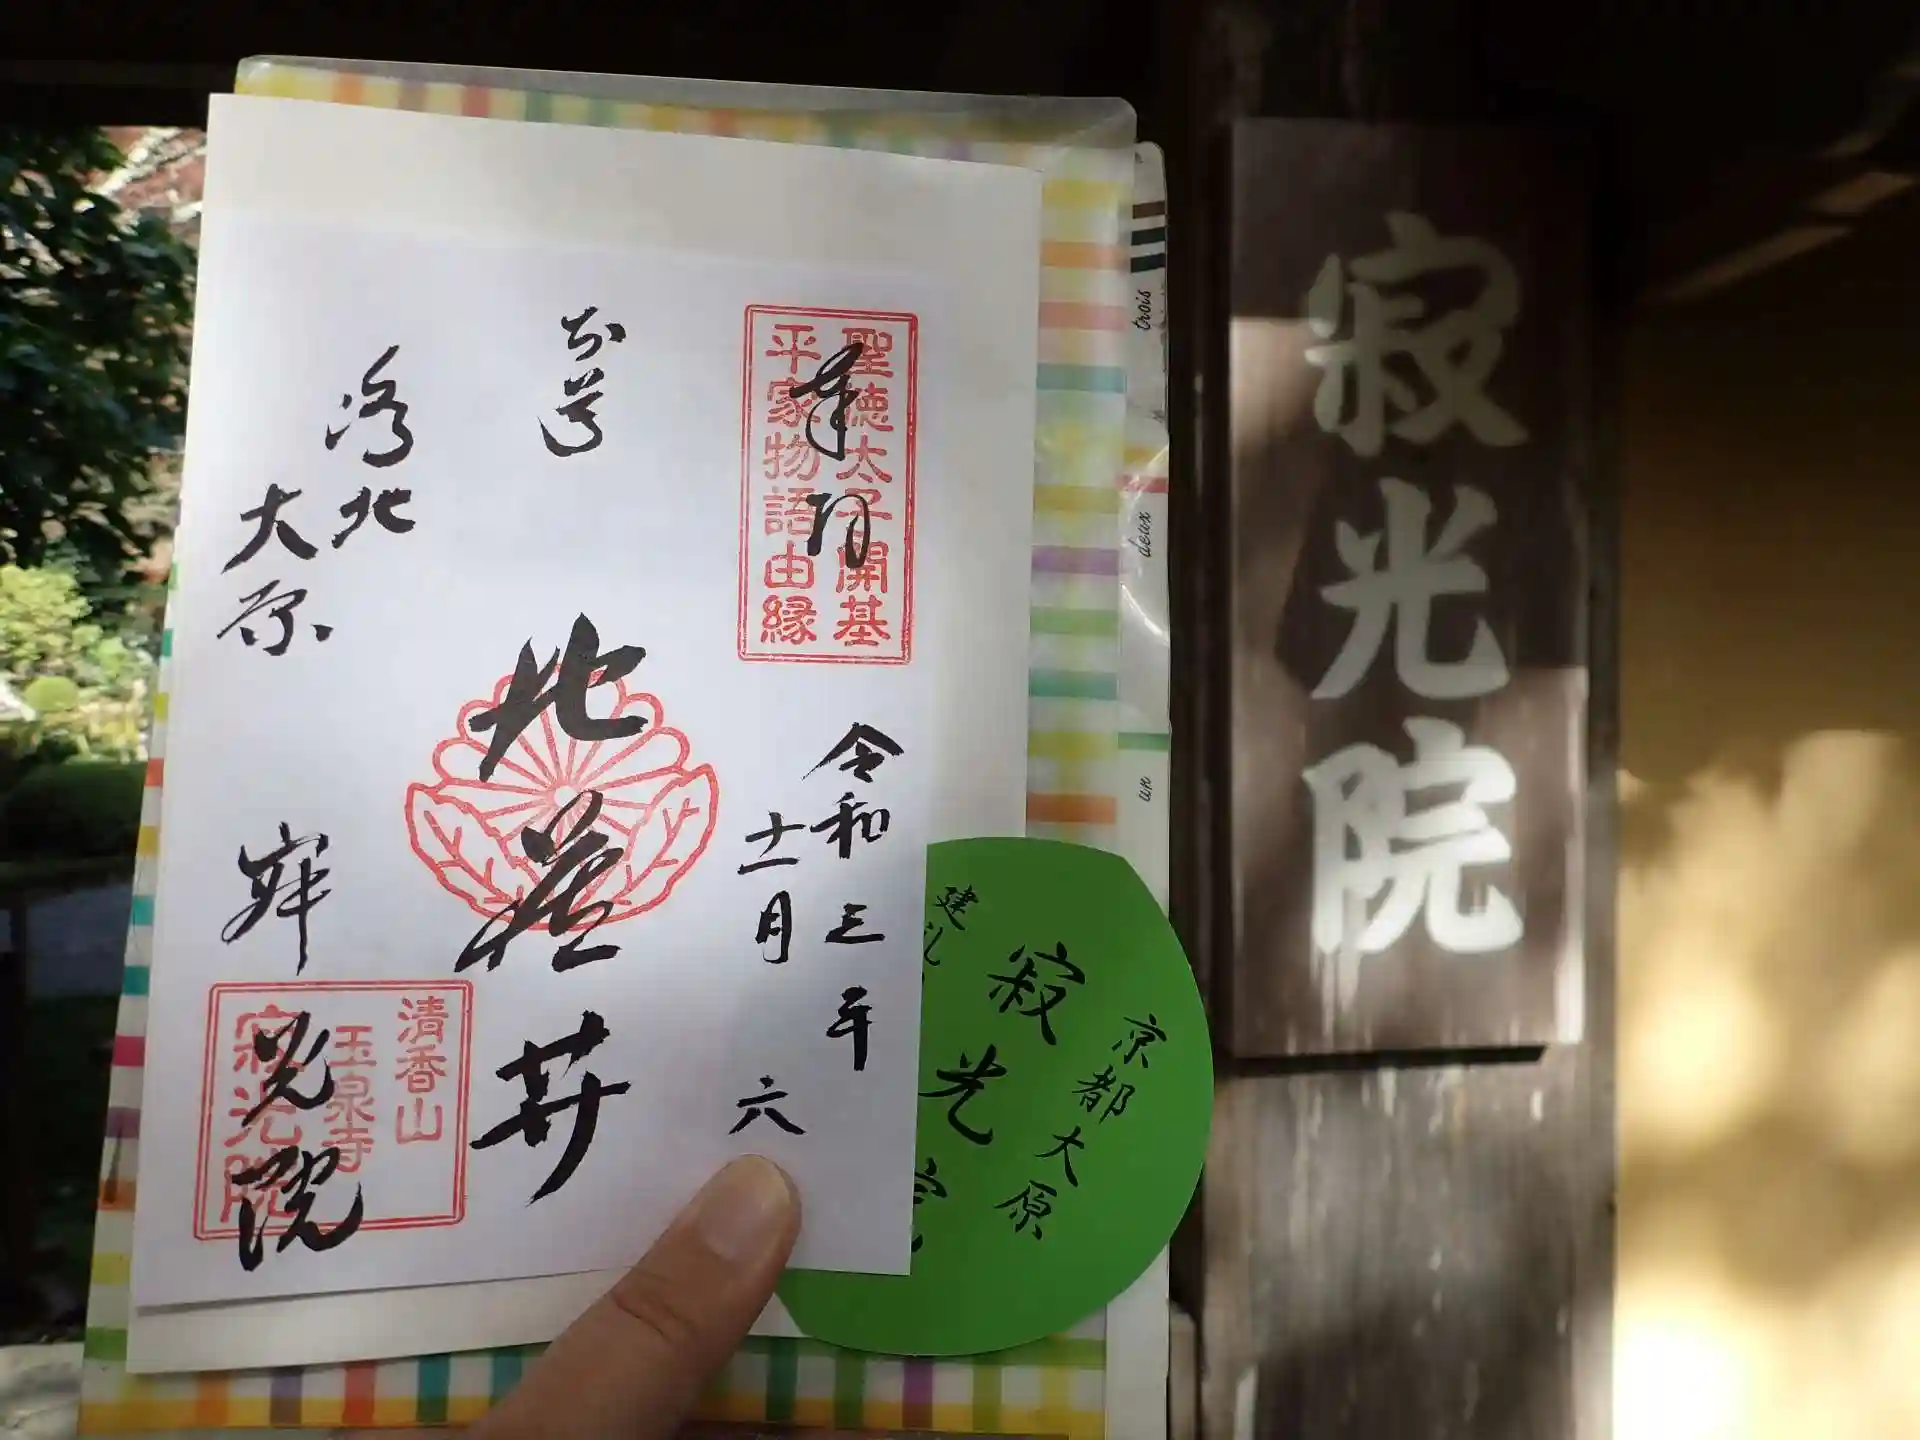 奉拝
聖徳太子開基
平家物語由縁
令和三年
十一月
六
別号
地蔵尊
洛北
大原
寂光院
清香山
玉泉寺
寂光院
寂光院
京都大原
寂光院
建礼
trois
deux
un